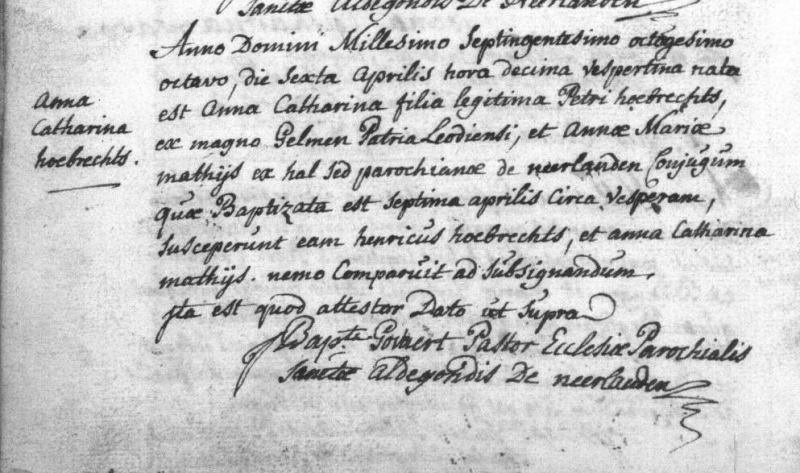 Sanctæ Aldegondis De Neerlanden
Anno Domini Millesimo Septingentesimo octogesimo
octavo, die Sexta Aprilis hora decima vespertina nata
est Anna Catharina filia legitima Petri hoebrechts,
ex magno Gelmen Patria Leodiensi, et Annæ Mariæ
mathijs ex hal sed parochianæ de neerlanden Conjugum
quæ Baptizata est septima aprilis Circa vesperam,
susceperunt eam henricus hoebrechts, et anna Catharina
mathijs. nemo Comparuit ad subsignandum.
Ita est quod attestor Dato ut supra
Anna
Catharina
hoebrechts.
J Bapta Govaert Pastor Ecclesiæ Parochialis
Sanctæ Aldegondis De neerlanden